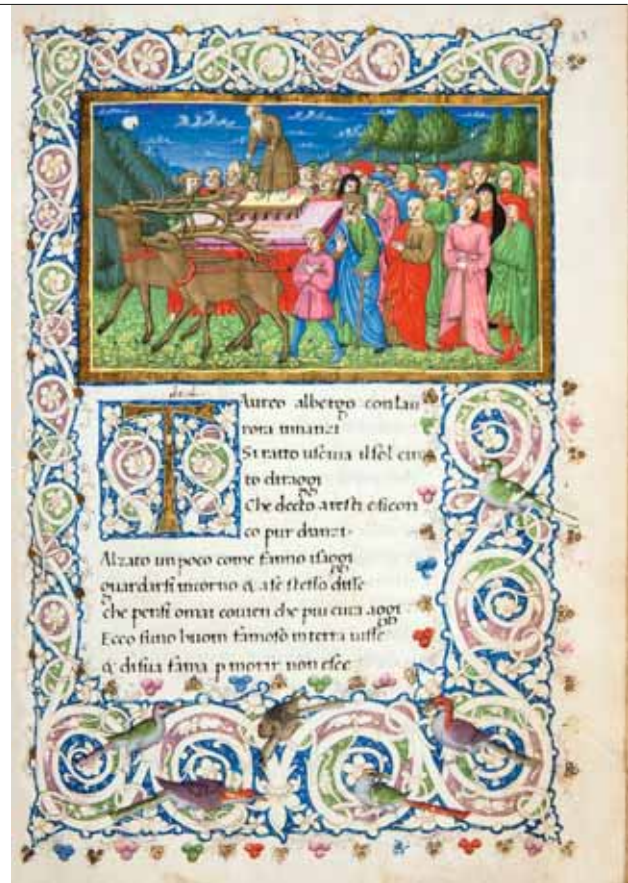 T Aureo albergo con lau
rora innanzi
Si ratto usciua il sol cinc
to di raggi
Che decto aresti e si cori
co pur dianzi
Alzato un poco come fanno i saggi
guardarsi intorno & a se stesso disse
che pensi omai conuien che piu cura aggi
Ecco s'uno huom famoso in terra uisse
& di sua fama p morir non esce